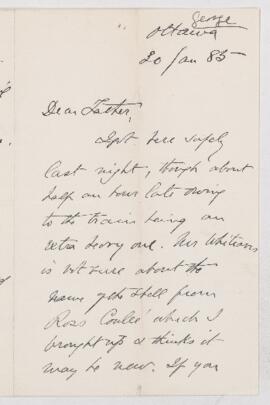 George
Ottawa
20 Jan 85
Dear Father,
I got here safely
last night, though about
half an hour late owing
to the train being an
extra heavy one. Mr Whiteaves
is not sure about the
name of the shell from
Ross Coulée which I
brought up & thinks it
may be new. If you